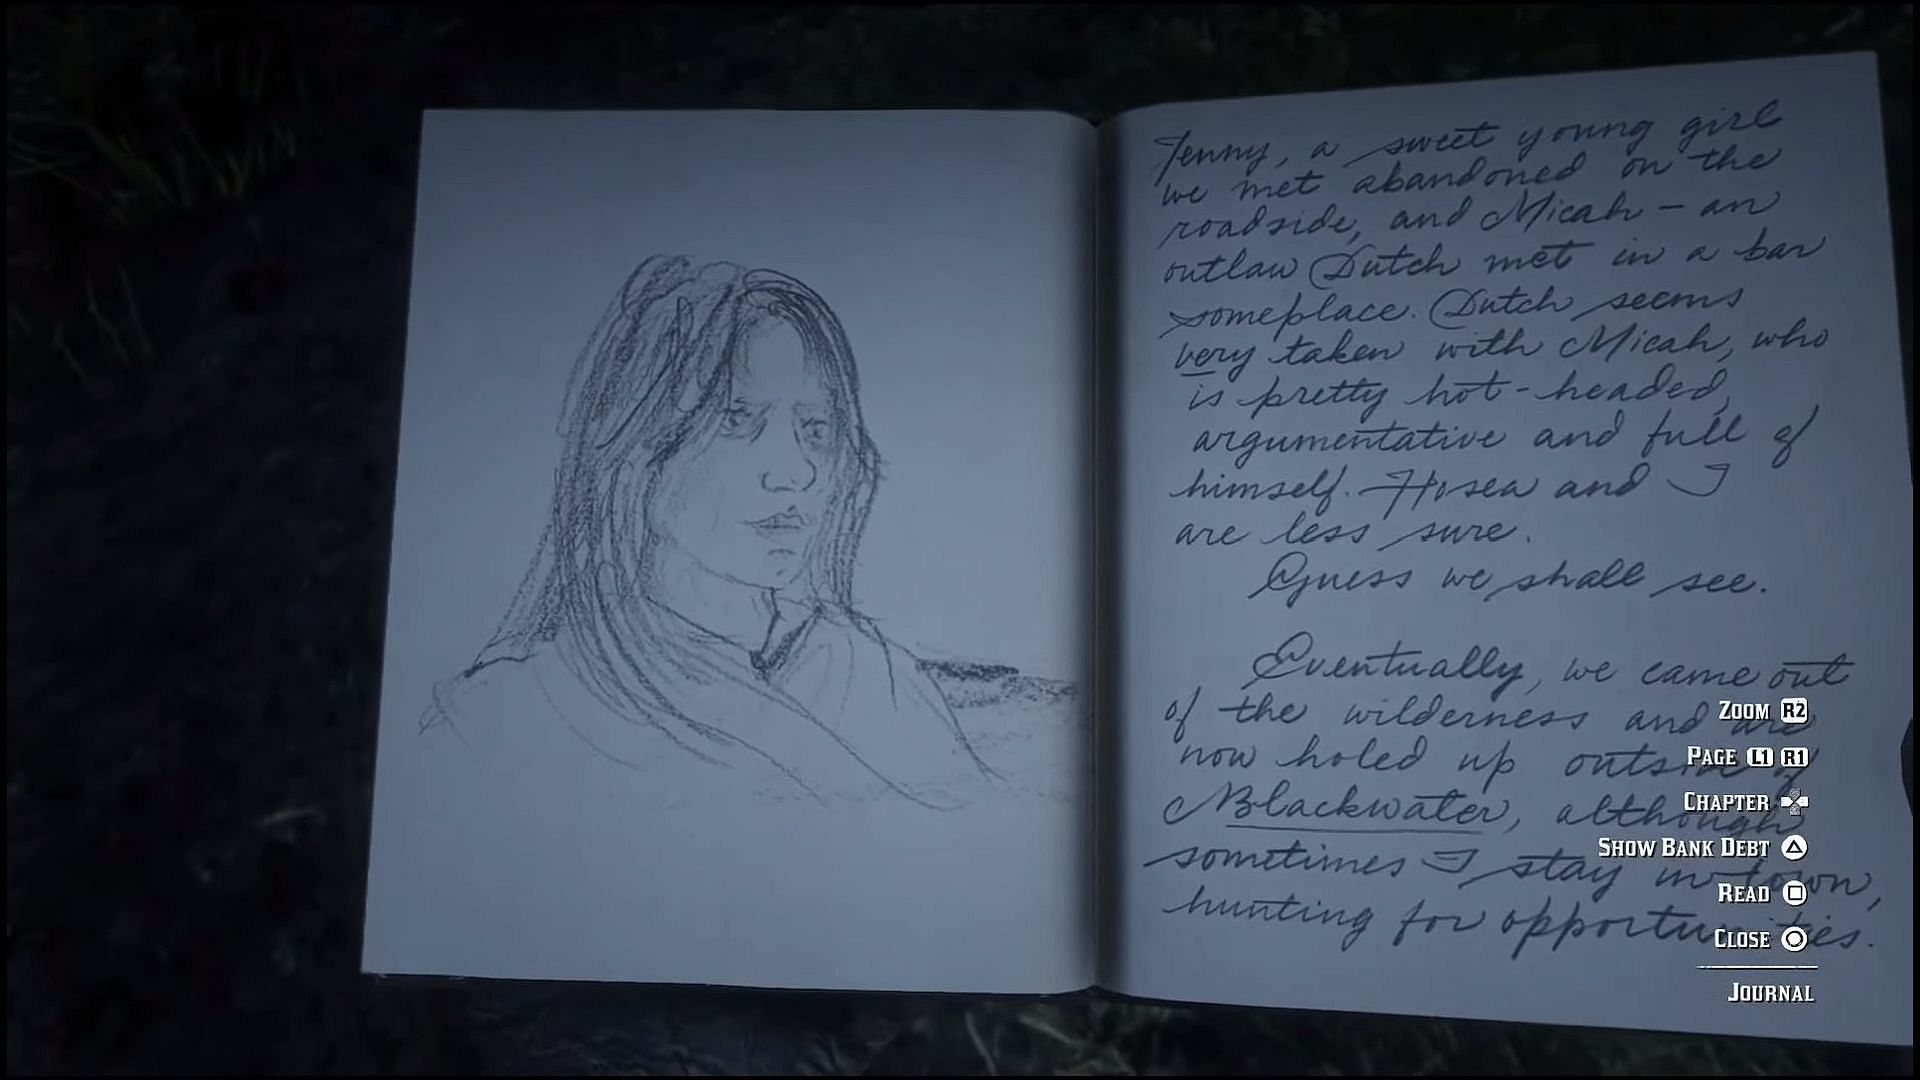 Jenny, a sweet young girl
we met abandoned on the
roadside, and Micah - an
outlaw Dutch met in a bar
someplace. Dutch seems
very taken with Micah, who
is pretty hot-headed,
argumentative and full of
himself. Hosea and I
are less sure.
Guess we shall see.
Eventually, we came out
of the wilderness and are
now holed up outside of
Blackwater, although
sometimes I stay in town,
hunting for opportunities.
ZOOM R2
PAGE L1 R1
CHAPTER
SHOW BANK DEBT
READ
CLOSE
JOURNAL